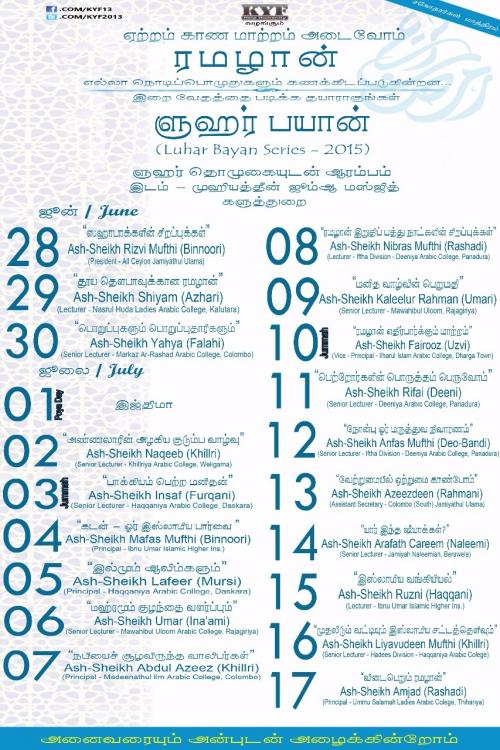 .COM/KYF13
.COM/KYF2013
KYF
வழங்கும்
ஏற்றம் காண மாற்றம் அடைவோம்
ரமழான்
எல்லா நொடிப்பொழுதுகளும் கணக்கிடப்படுகின்றன...
இறை வேதத்தை படிக்க தயாராகுங்கள்
ளுஹர் பயான்
(Luhar Bayan Series - 2015)
ளுஹர் தொழுகையுடன் ஆரம்பம்
இடம் - முஹியத்தீன் ஜும்ஆ மஸ்ஜித்
களுத்துறை
ஜூன் / June
28 "ஸஹாபாக்களின் சிறப்புக்கள்"
Ash-Sheikh Rizvi Mufthi (Binnoori)
(President - All Ceylon Jamiyathul Ulama)
29 "தூய தௌபாவுக்கான ரமழான்"
Ash-Sheikh Shiyam (Azhari)
(Lecturer - Nasrul Huda Ladies Arabic College, Kalutara)
30 "பொறுப்புகளும் பொறுப்புதாரிகளும்"
Ash-Sheikh Yahya (Falahi)
(Senior Lecturer - Markaz Ar-Rashad Arabic College, Colombo)
ஜூலை / July
01 Poya Day
இஜ்திமா
02 "அண்ணலாரின் அழகிய குடும்ப வாழ்வு"
Ash-Sheikh Naqeeb (Khillri)
(Senior Lecturer - Khillriya Arabic College, Weligama)
03 Jummah "பாக்கியம் பெற்ற மனிதன்"
Ash-Sheikh Insaf (Furqani)
(Senior Lecturer - Haqqaniya Arabic College, Daskara)
04 "கடன் - ஓர் இஸ்லாமிய பார்வை"
Ash-Sheikh Mafas Mufthi (Binnoori)
(Principal - Ibnu Umar Islamic Higher Ins.)
05 "இல்மும் ஆலிம்களும்"
Ash-Sheikh Lafeer (Mursi)
(Principal - Haqqaniya Arabic College, Daskara)
06 "மஹ்ரமும் குழந்தை வளர்ப்பும்"
Ash-Sheikh Umar (Ina'ami)
(Senior Lecturer - Mawahibul Uloom Arabic College, Rajagiriya)
07 "நபியைச் சூழவிருந்த வாலிபர்கள்"
Ash-Sheikh Abdul Azeez (Khillri)
(Principal - Madeenathul Ilm Arabic College, Colombo)
08 "ரமழான் இறுதிப் பத்து நாட்களின் சிறப்புக்கள்"
Ash-Sheikh Nibras Mufthi (Rashadi)
(Lecturer - Iftha Division - Deeniya Arabic College, Panadura)
09 "மனித வாழ்வின் பெறுமதி"
Ash-Sheikh Kaleelur Rahman (Umari)
(Senior Lecturer - Mawahibul Uloom, Rajagiriya)
10 Jummah "ரமழான் எதிர்பார்க்கும் மாற்றம்"
Ash-Sheikh Fairooz (Uzvi)
(Vice - Principal - Ilharul Islam Arabic College, Dharga Town)
11 "பெற்றோர்களின் பொருத்தம் பெறுவோம்"
Ash-Sheikh Rifai (Deeni)
(Senior Lecturer - Deeniya Arabic College, Panadura)
12 "நோன்பு ஓர் மருத்துவ நிவாரணம்"
Ash-Sheikh Anfas Mufthi (Deo-Bandi)
(Senior Lecturer - Iftha Division - Deeniya Arabic College, Panadura)
13 "வேற்றுமையில் ஒற்றுமை காண்போம்"
Ash-Sheikh Azeezdeen (Rahmani)
(Assistant Secretary - Colombo (South) Jamiyathul Ulama)
14 "யார் இந்த ஷீயாக்கள்?"
Ash-Sheikh Arafath Careem (Naleemi)
(Senior Lecturer - Jamiyah Naleemiah, Beruwela)
15 "இஸ்லாமிய வங்கியியல்"
Ash-Sheikh Ruzni (Haqqani)
(Lecturer - Ibnu Umar Islamic Higher Ins.)
16 "முதலீடும் வட்டியும் இஸ்லாமிய சட்டத்தெளிவும்"
Ash-Sheikh Liyavudeen Mufthi (Khillri)
(Senior Lecturer - Hadees Division - Haqqaniya Arabic College)
17 "விடைபெறும் ரமழான்"
Ash-Sheikh Amjad (Rashadi)
(Principal - Ummu Salamah Ladies Arabic College, Thihariya)
அனைவரையும் அன்புடன் அழைக்கின்றோம்